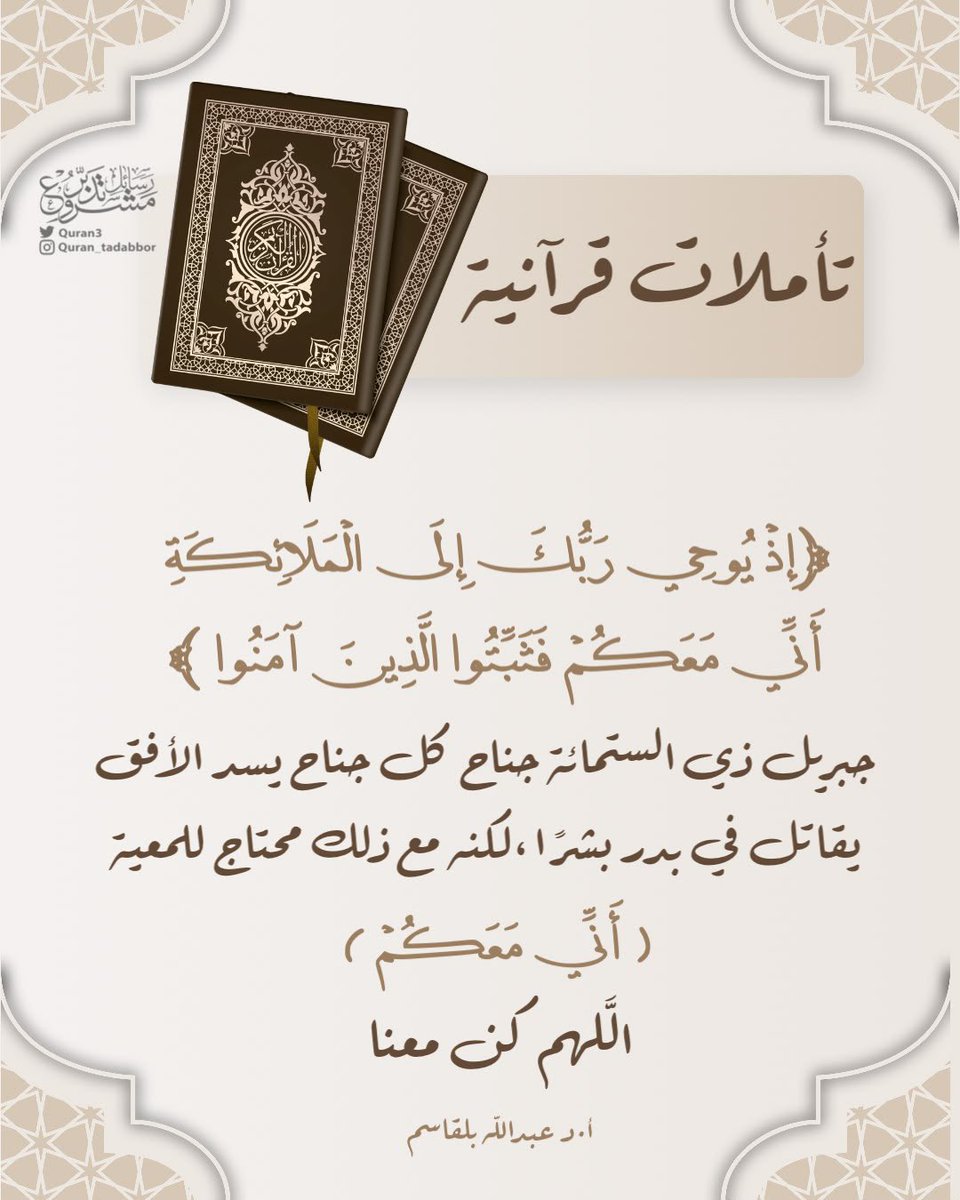 مشروع رسائل تدبر
Quran3
Quran_tadabbor
القرآن الكريم
تأملات قرآنية
﴿إِذْ يُوحِي رَبُّكَ إِلَى الْمَلَائِكَةِ
أَنِّي مَعَكُمْ فَثَبِّتُوا الَّذِينَ آمَنُوا ﴾
جبريل ذي الستمائة جناح كل جناح يسد الأفق
يقاتل في بدر بشرًا ،لكنه مع ذلك محتاج للمعية
( أَنِّي مَعَكُمْ )
اللَّهم كن معنا
أ.د عبدالله بلقاسم